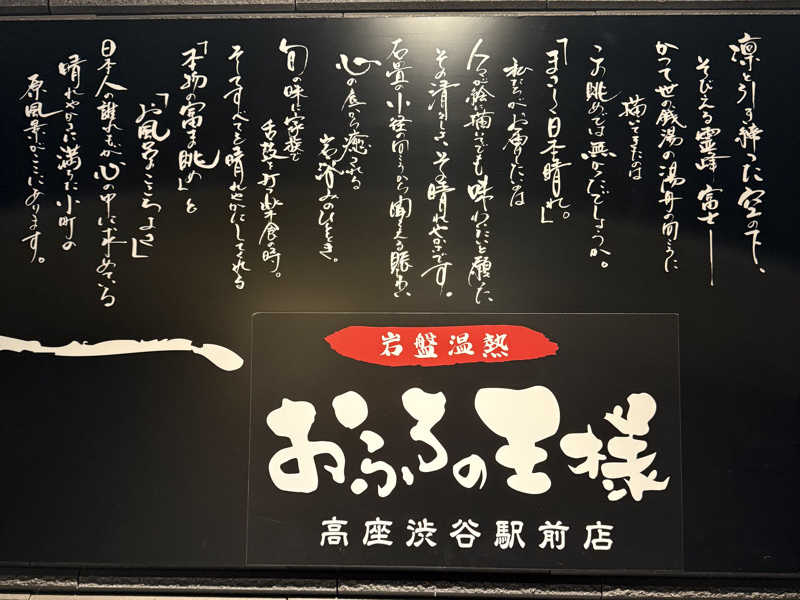 凛と引き締った空の下、
そびえる霊峰 富士――
かつて世の銭湯の湯舟の向うに
描いてきたのは
この眺めでは無かったでしょうか。
「まさしく日本晴れ。」
私たちがお届したいのは
人々が絵に描いてでも味わいたいと願った
その清々しく、その晴れやかさです。
石畳の小径の向うから聞える賑わい
心の底から癒される
岩盤浴のひととき。
旬の味に家族で
舌鼓を打つ楽食の時。
そしてすべてを晴れやかにしてくれる
「本物の富士眺め」と
「お風呂のここちよさ」
日本人の誰もが心の中に求めている
晴れやかに満ちた小町の
原風景がここにあります。
岩盤温熱
おふろの王様
高座渋谷駅前店